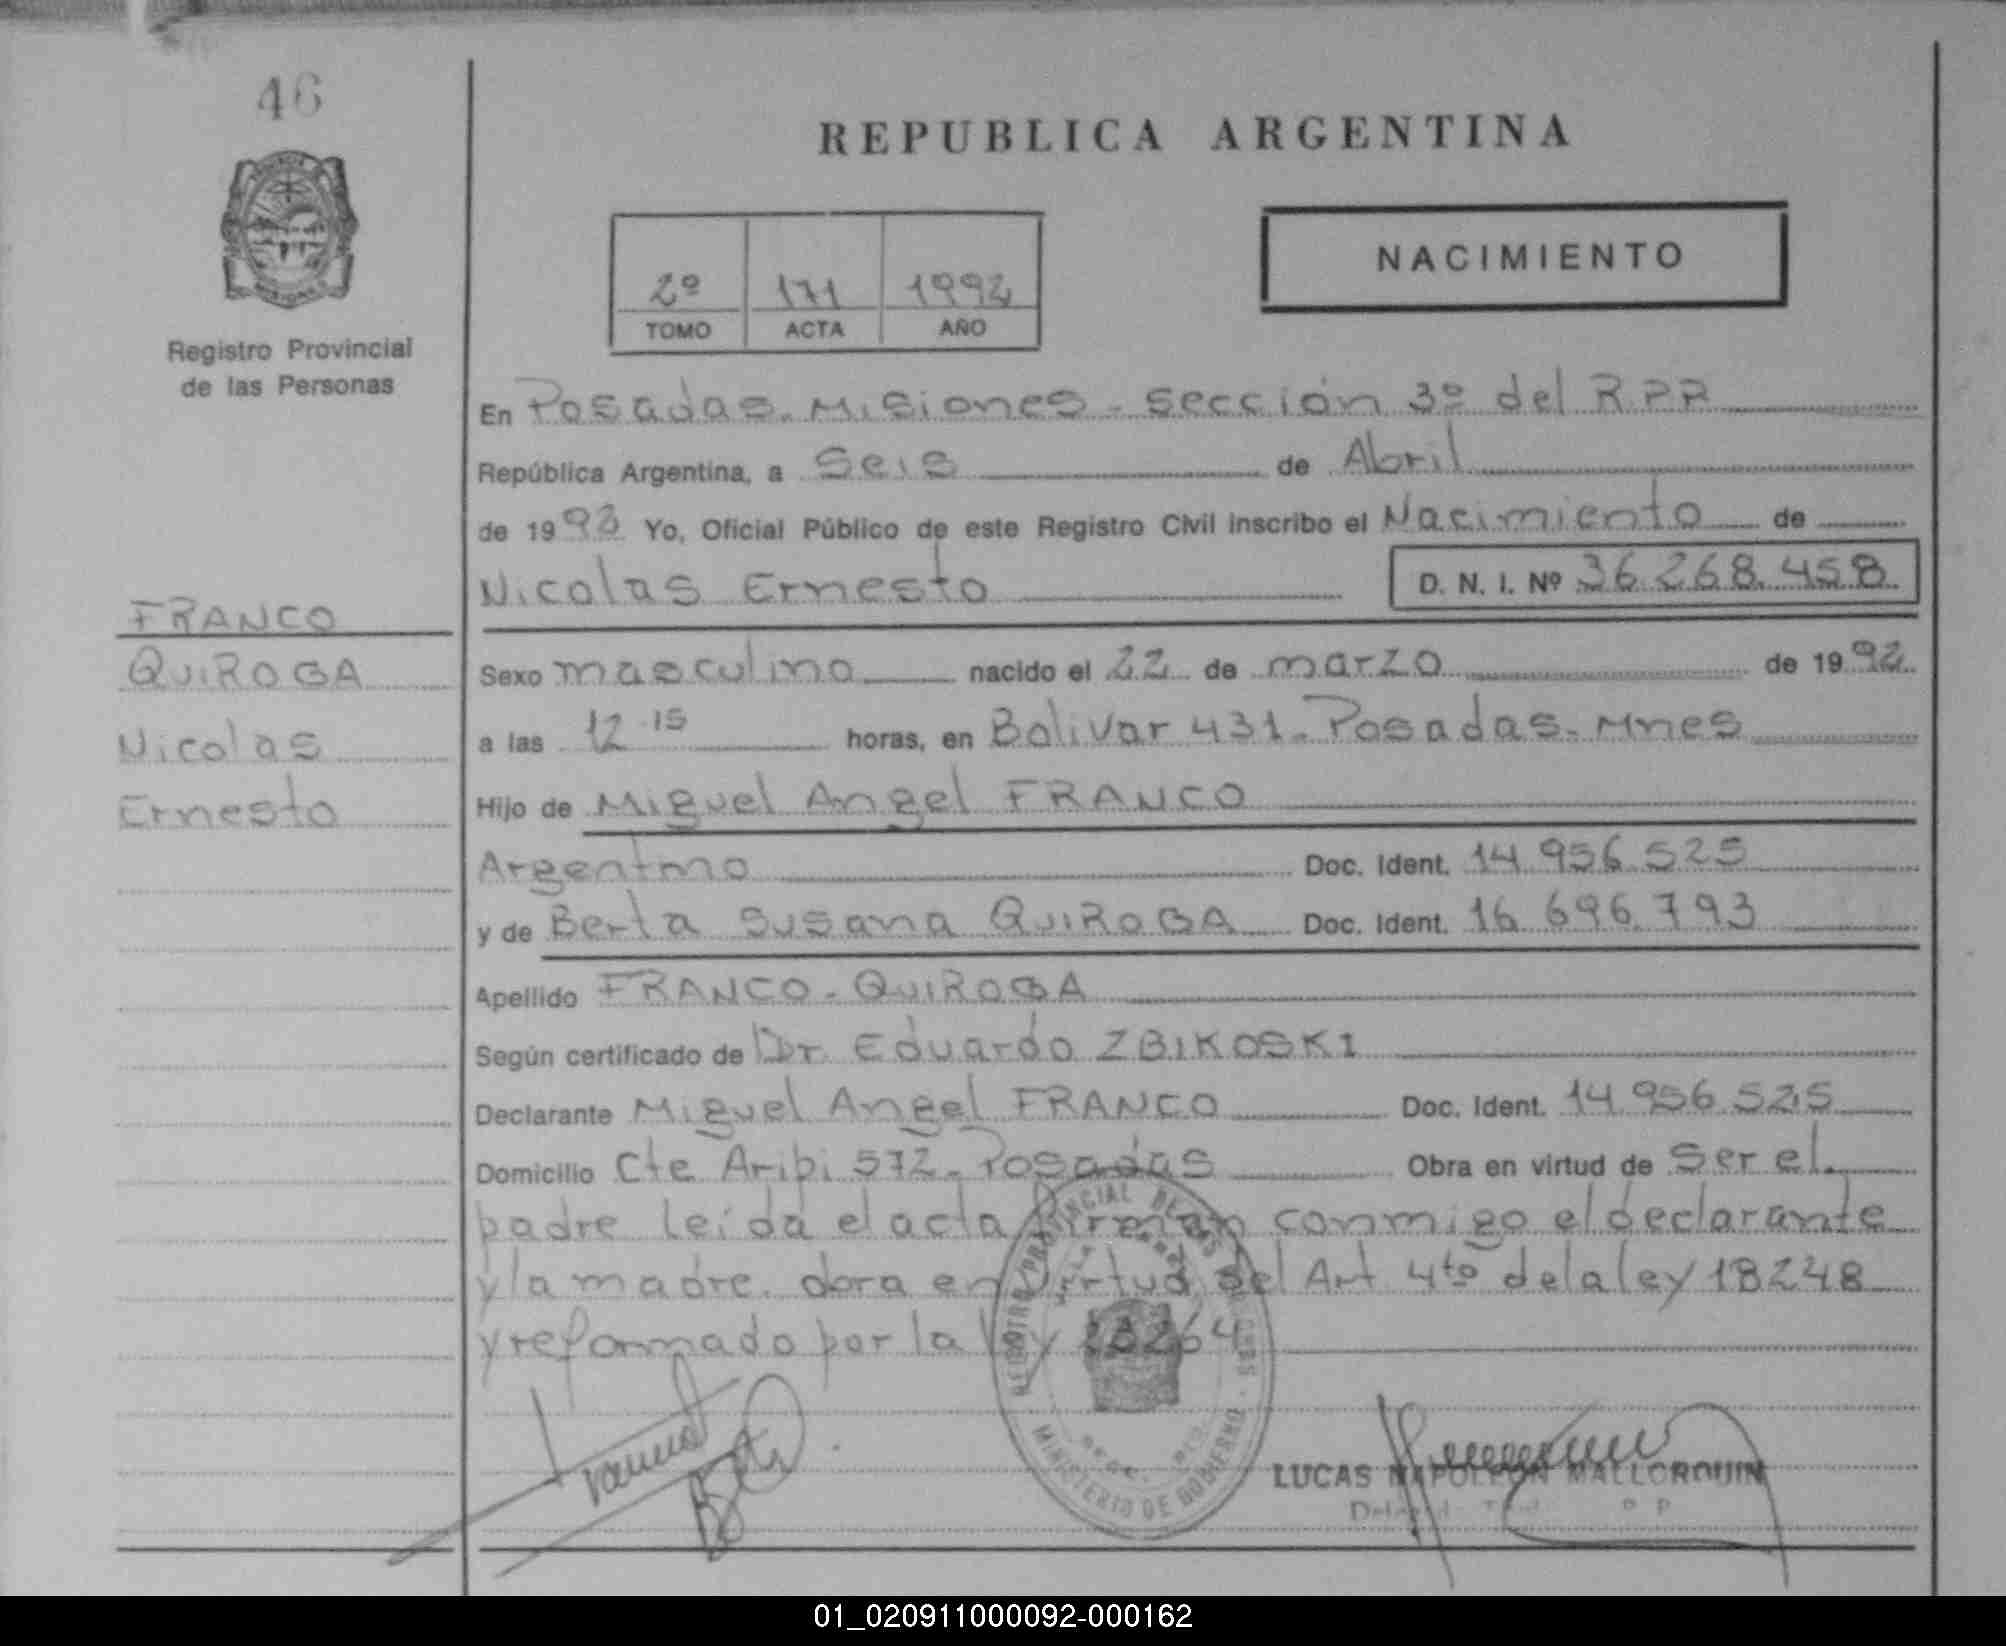 46
REPUBLICA ARGENTINA
NACIMIENTO
2º 171 1992
TOMO ACTA AÑO
Registro Provincial
de las Personas
En Posadas. Misiones - Sección 3º del R.P.P
República Argentina, a Seis de Abril
de 1992 Yo, Oficial Público de este Registro Civil inscribo el Nacimiento de
Nicolas Ernesto D. N. I. Nº 36.268.458
FRANCO
QUIROGA
Nicolas
Ernesto
Sexo masculino nacido el 22 de marzo de 1992
a las 12 15 horas, en Bolivar 431. Posadas. Mnes
Hijo de Miguel Angel FRANCO
Argentino Doc. Ident. 14.956.525
y de Berta Susana QUIROGA Doc. Ident. 16.696.793
Apellido FRANCO - QUIROGA
Según certificado de Dr. Eduardo ZBIKOSKI
Declarante Miguel Angel FRANCO Doc. Ident. 14.956.525
Domicilio Cte Aripi 572. Posadas Obra en virtud de Ser el
padre leída el acta firman conmigo el declarante
y la madre. obra en virtud del Art 4to de la ley 18248
y reformado por la ley 23264
REGISTRO PROVINCIAL DE LAS PERSONAS
MINISTERIO DE GOBIERNO
LUCAS NAPOLEON MALLORQUIN
01_020911000092-000162